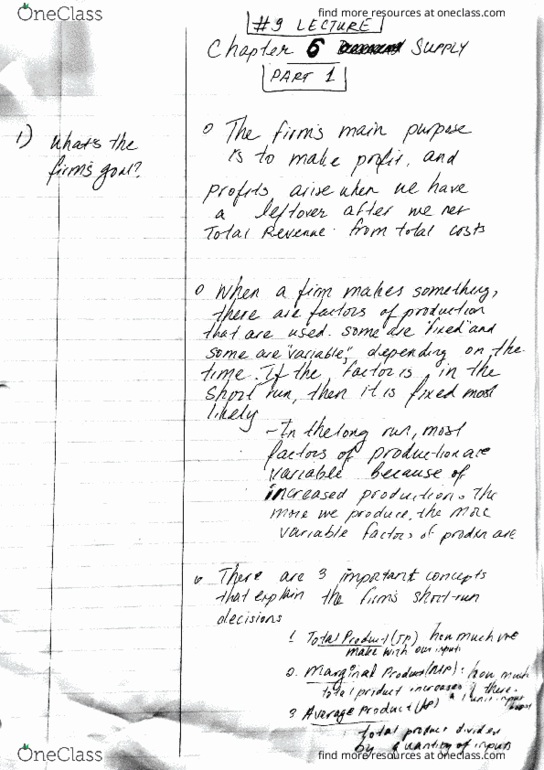 OneClass
find more resources at oneclass.com
#9 LECTURE
Chapter 6 SUPPLY
PART 1
1) whats the
firm's goal?
o The firm's main purpose
is to make profit, and
profits arise when we have
a leftover after we net
Total Revenue from total costs
o When a firm makes something,
there are factors of production
that are used. some are "fixed" and
some are "variable", depending on the
time. If the factor is in the
short run, then it is fixed most
likely
- In the long run, most
factors of production are
variable because of
increased production. The
more we produce, the more
variable factors of produ are
o There are 3 important concepts
that explain the firm's short-run
decisions
1. Total Product (TP) how much we
make with our inputs
2. Marginal Product (MP): how much
total product increases if there
1 unit input
3 Average Product (AP)
total product divided
by quantity of inputs
OneClass
find more resources at oneclass.com